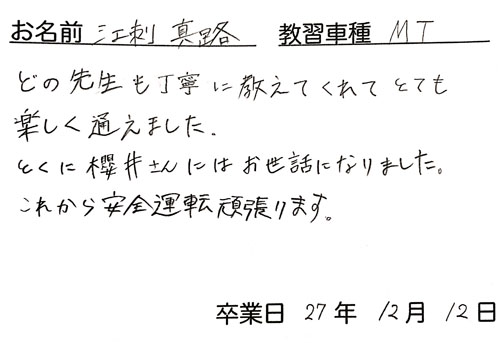 お名前 江刺 真路 教習車種 MT
どの先生も丁寧に教えてくれてとても
楽しく通えました.
とくに櫻井さんにはお世話になりました。
これから安全運転頑張ります。
卒業日 27年 12月 12日